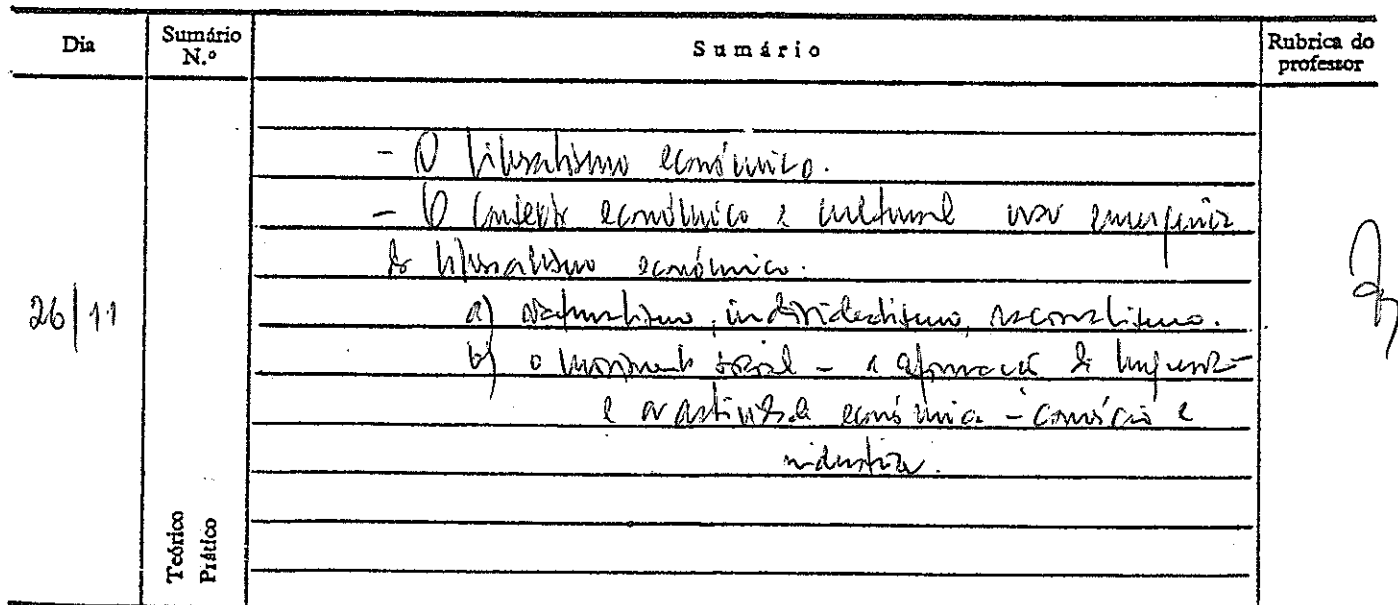 Dia
Sumário N.º
Sumário
Rubrica do professor
- O liberalismo económico.
- O contexto económico e cultural emergência
do liberalismo económico.
26/11
a) Naturalismo, individualismo, racionalismo.
b) o movimento social - a afirmação da burguesia
e a actividade económica - comércio e
indústria.
Teórico
Prático